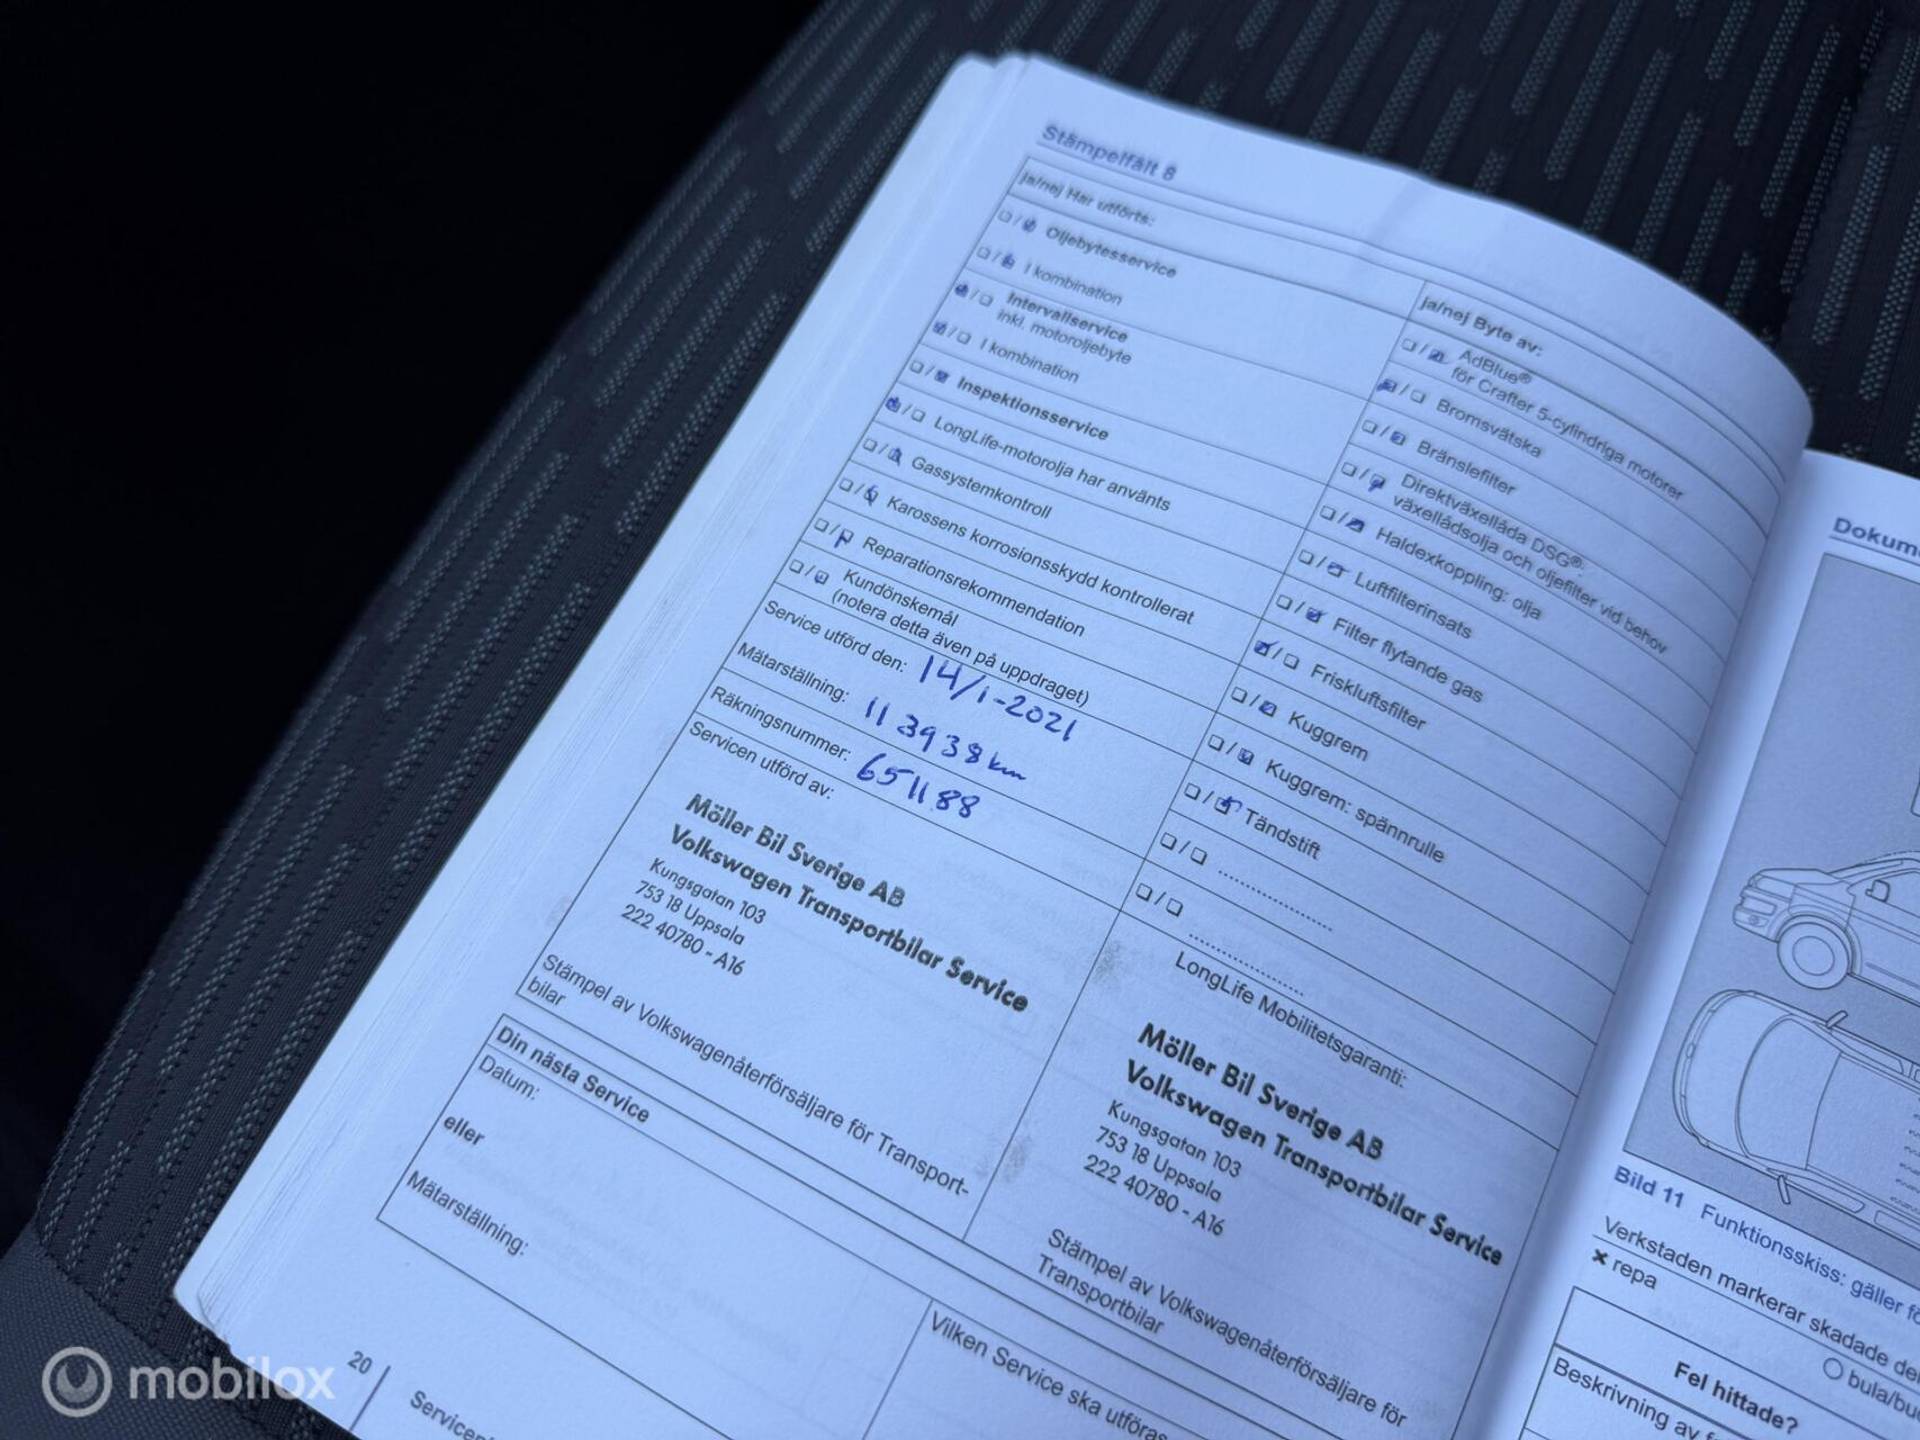 Stämpelfält 8
ja/nej Har utförts:
Oljebytesservice
I kombination
Intervallservice
inkl. motoroljebyte
I kombination
Inspektionsservice
LongLife-motorolja har använts
Gassystemkontroll
Karossens korrosionsskydd kontrollerat
Reparationsrekommendation
Kundönskemål
(notera detta även på uppdraget)
Service utförd den: 14/1-2021
Mätarställning: 113938 km
Räkningsnummer: 651188
Servicen utförd av:
Möller Bil Sverige AB
Volkswagen Transportbilar Service
Kungsgatan 103
753 18 Uppsala
222 40780 - A16
Stämpel av Volkswagenåterförsäljare för Transport-
bilar
ja/nej Byte av:
AdBlue®
för Crafter 5-cylindriga motorer
Bromsvätska
Bränslefilter
Direktväxellåda DSG®:
växellådsolja och oljefilter vid behov
Haldexkoppling: olja
Luftfilterinsats
Filter flytande gas
Friskluftsfilter
Kuggrem
Kuggrem: spännrulle
Tändstift
LongLife Mobilitetsgaranti:
Möller Bil Sverige AB
Volkswagen Transportbilar Service
Kungsgatan 103
753 18 Uppsala
222 40780 - A16
Stämpel av Volkswagenåterförsäljare för
Transportbilar
Din nästa Service
Datum:
eller
Mätarställning:
Vilken Service ska utföras
20
Bild 11 Funktionsskiss: gäller
Verkstaden markerar skadade
× repa
bula/
Fel hittade?
Beskrivning av
mobilox